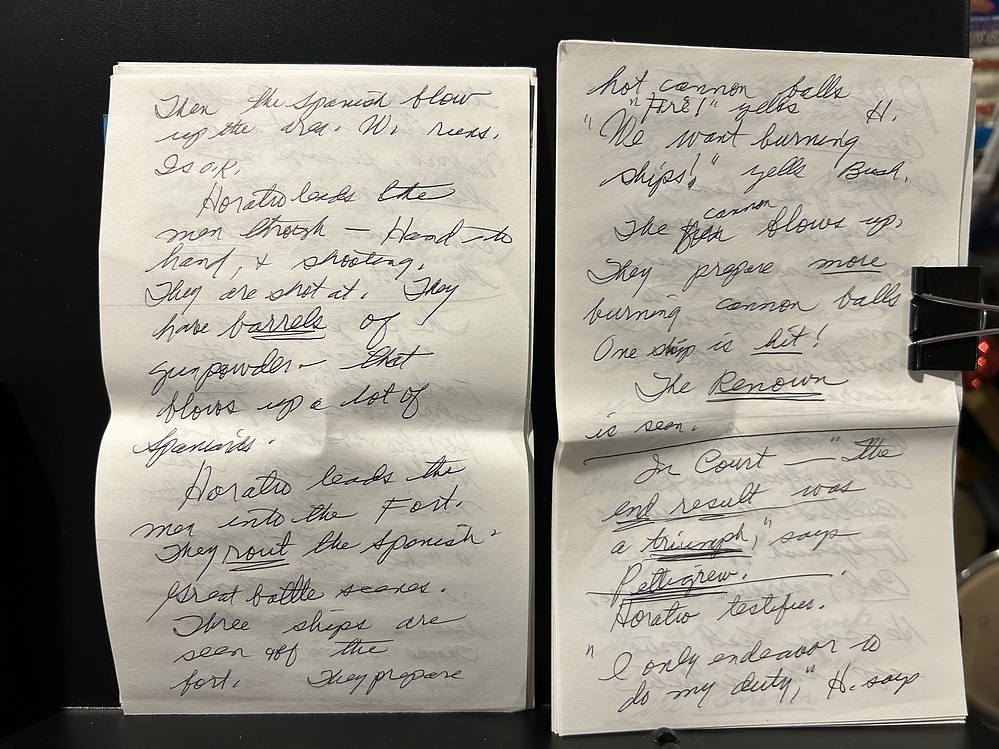 Then the Spanish blow
up the area. W. runs.
Is O.K.
Horatio leads the
men through — Hand to
hand, & shooting.
They are shot at. They
have barrels of
gunpowder — that
blows up a lot of
Spaniards.
Horatio leads the
men into the Fort.
They rout the Spanish.
Great battle scenes.
Three ships are
seen off the
fort. They prepare
hot cannon balls
"Fire!" yells H.
"We want burning
ships!" yells Bush.
The cannon blows up.
They prepare more
burning cannon balls
One ship is hit!
The Renown
is seen.
In Court — "The
end result was
a triumph," says
Pettigrew.
Horatio testifies.
"I only endeavor to
do my duty," H. says